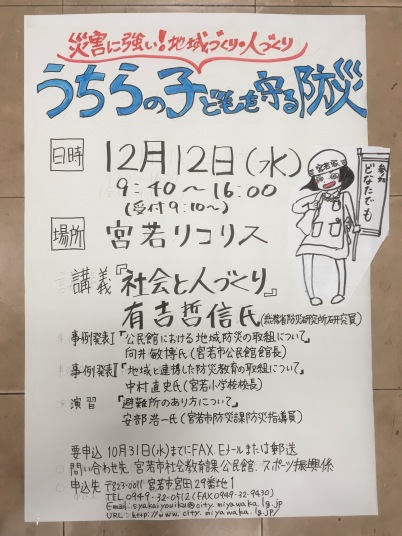 災害に強い!地域づくり・人づくり
うちらの子どもを守る防災
日時 12月12日(水)
9:40~16:00
(受付9:10~)
場所 宮若リコリス
講義『社会と人づくり』
有吉哲信氏(総務省防災研究所研究員)
事例発表Ⅰ「公民館における地域防災の取組について」
向井敏博氏(宮若市公民館館長)
事例発表Ⅱ「地域と連携した防災教育の取組について」
中村直史氏(宮若小学校校長)
演習「避難所のあり方について」
安部浩一氏(宮若市防災課防災指導員)
要申込 10月31日(水)までにFAX、Eメールまたは郵送
問い合わせ先 宮若市社会教育課 公民館、スポーツ振興係
申込先 〒823-0011 宮若市宮田29番地1
TEL 0949-32-0512 (FAX 0949-32-9430)
Email: syakaikyouiku@city.miyawaka.lg.jp
URL: http://www.city.miyawaka.lg.jp
参加
どなたでも